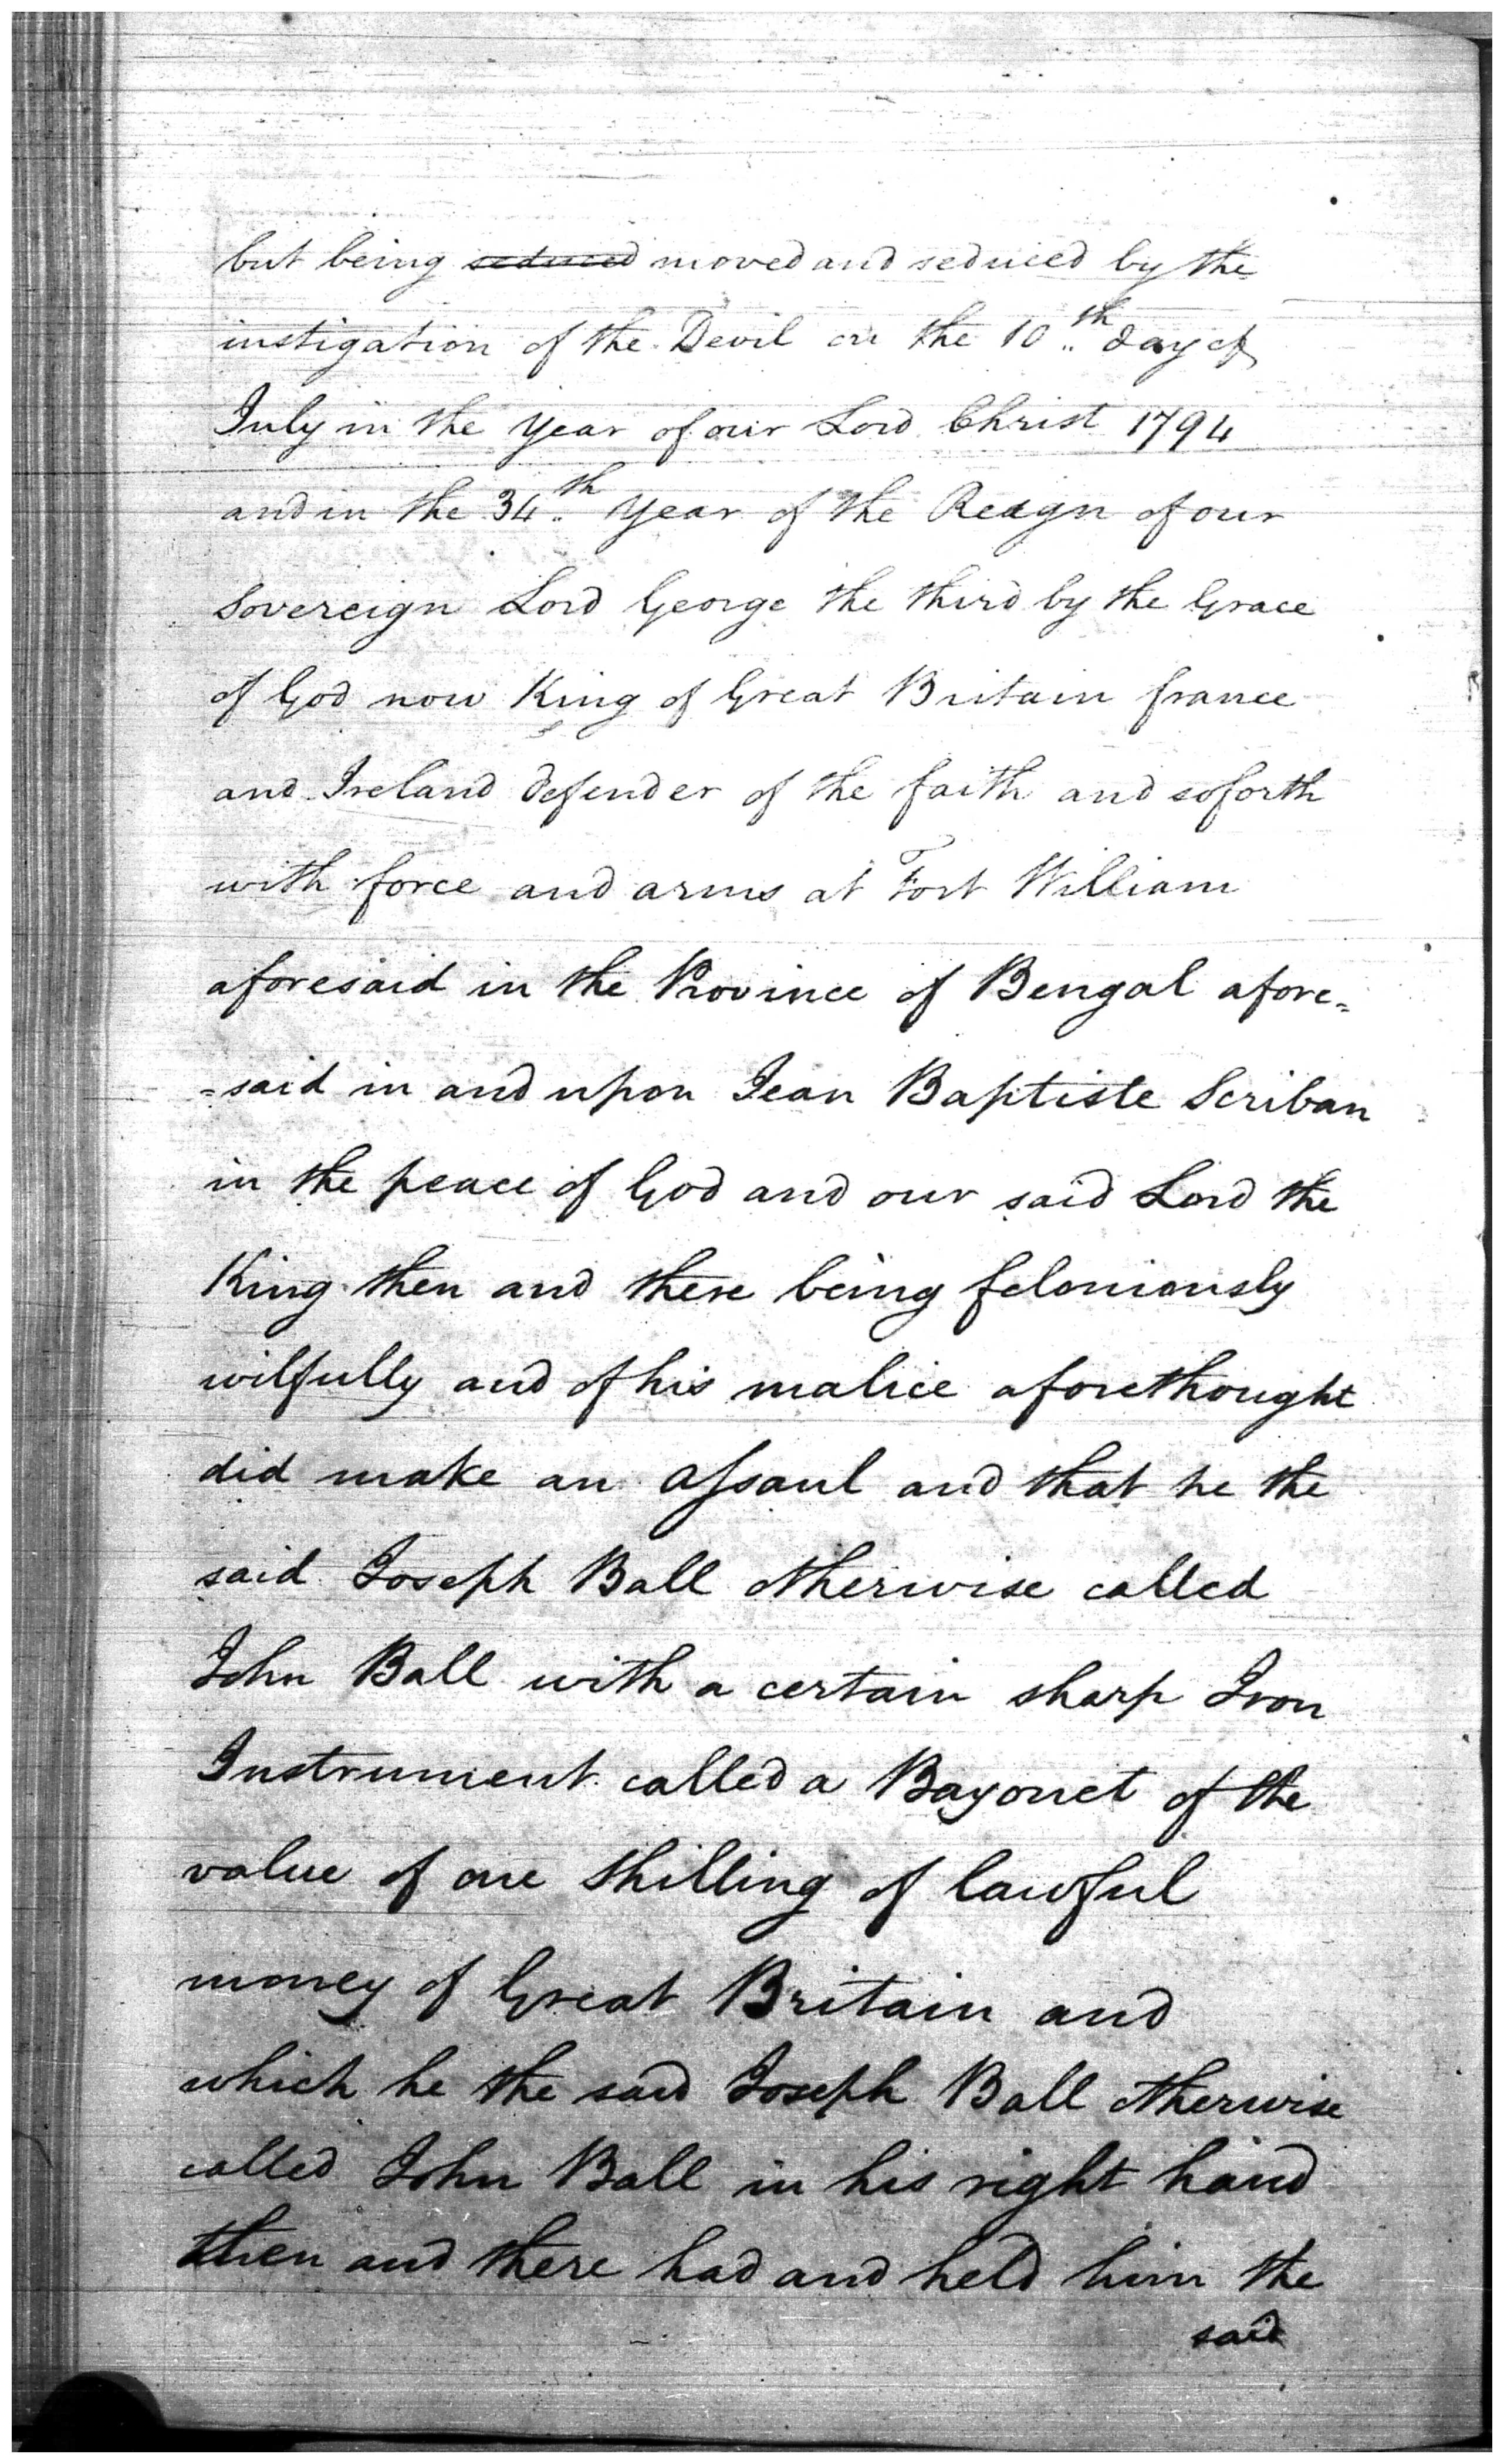 but being seduced moved and seduced by the
instigation of the Devil on the 10th day of
July in the year of our Lord Christ 1794
and in the 34th year of the Reign of our
Sovereign Lord George the third by the Grace
of God now King of Great Britain france
and Ireland defender of the faith and soforth
with force and arms at Fort William
aforesaid in the Province of Bengal afore=
=said in and upon Jean Baptiste Scriban
in the peace of God and our said Lord the
King then and there being feloniously
wilfully and of his malice aforethought
did make an assaul and that he the
said Joseph Ball otherwise called
John Ball with a certain sharp Iron
Instrument called a Bayonet of the
value of one shilling of lawful
money of Great Britain and
which he the said Joseph Ball otherwise
called John Ball in his right hand
then and there had and held him the
said